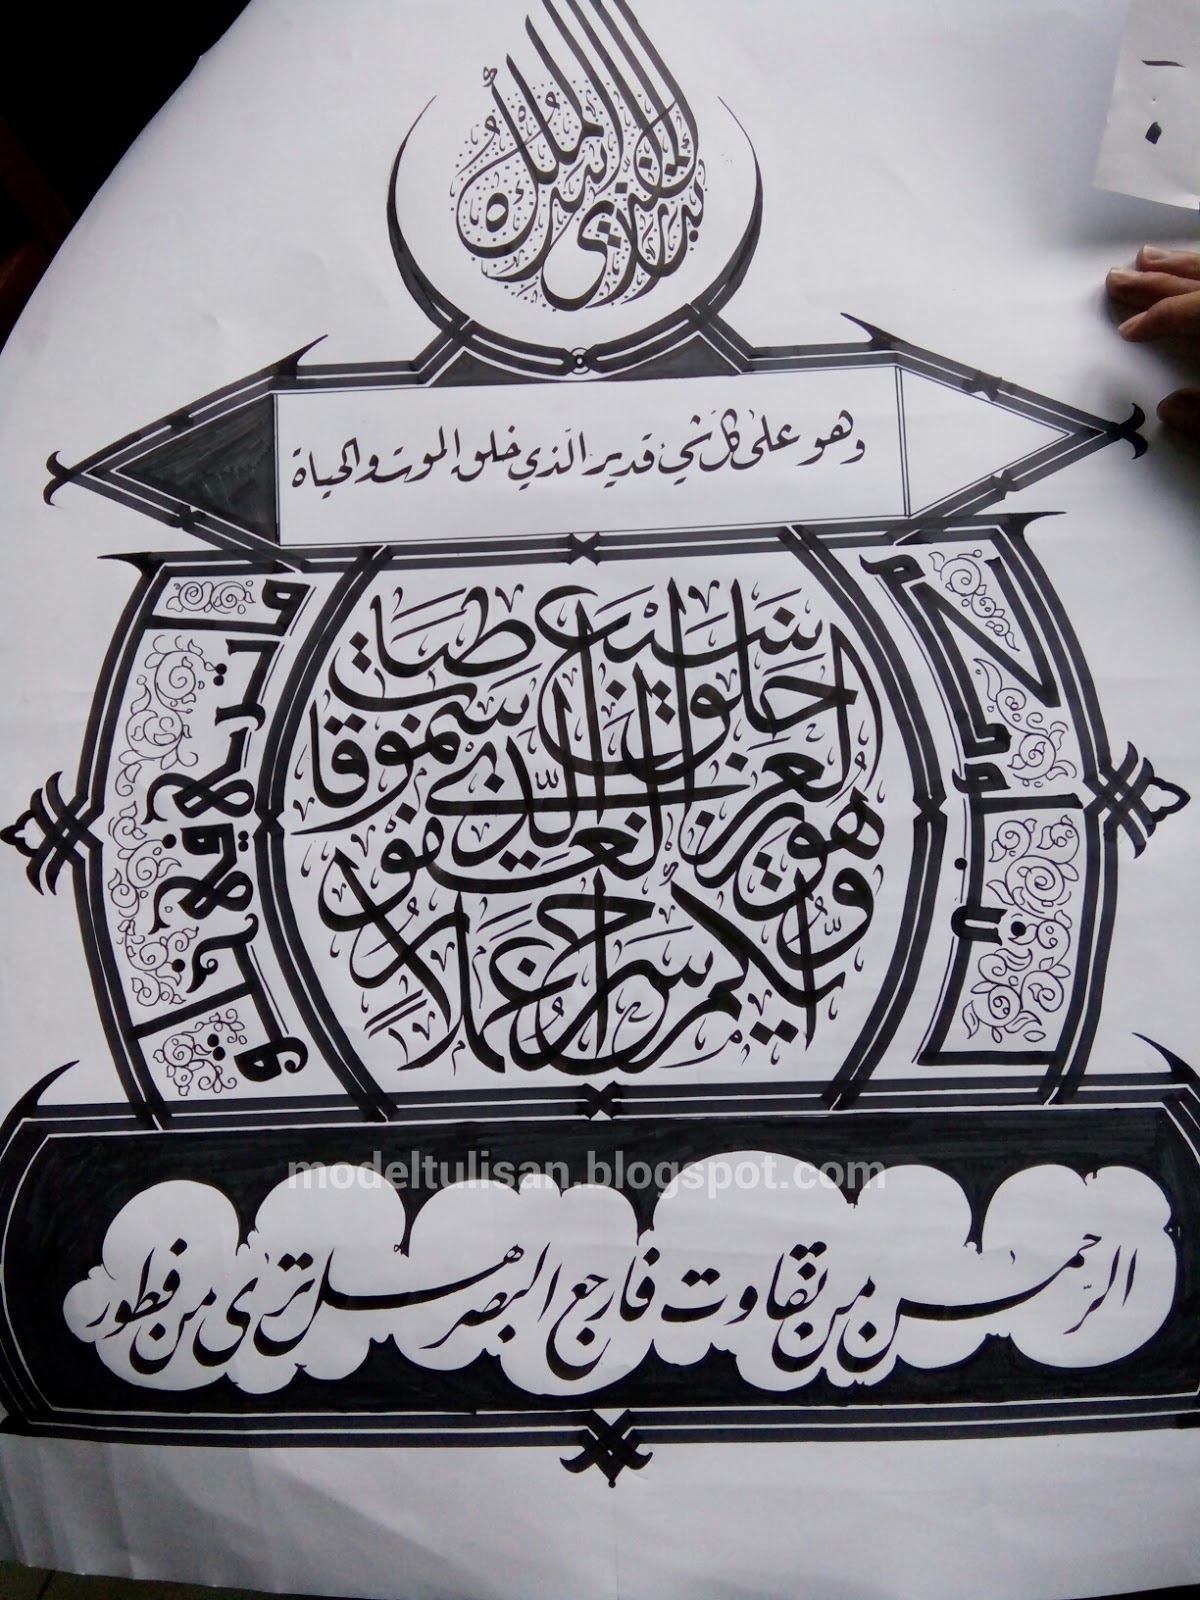 تبارك الذي بيده الملك
وهو على كل شيء قدير الذي خلق الموت والحياة
ليبلوكم
أيكم أحسن عملا
وهو العزيز الغفور
الذي خلق سبع سموت طباقا
ما ترى في خلق
modeltulisan.blogspot.com
الرحمن من تفاوت فارجع البصر هل ترى من فطور